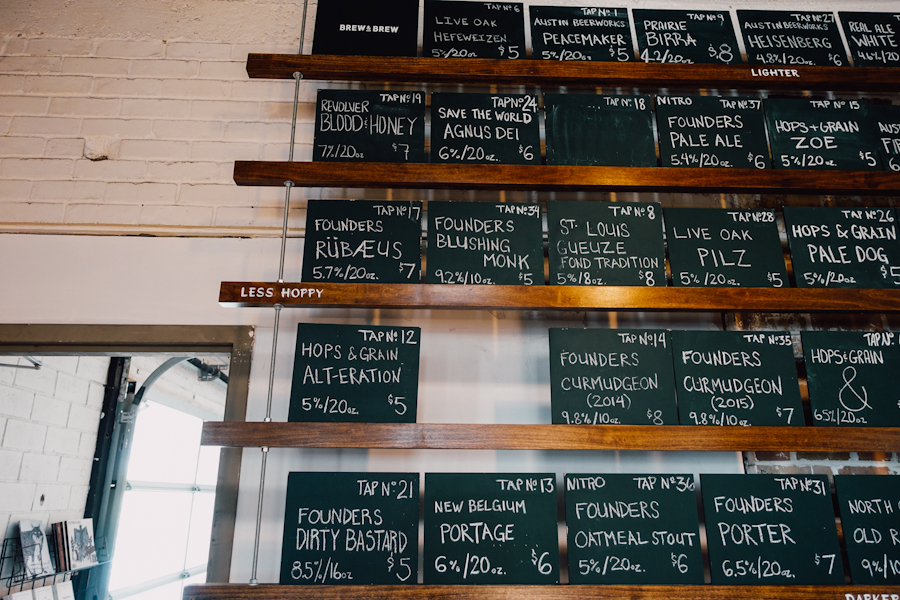 BREW & BREW
TAP Nº 6
LIVE OAK
HEFEWEIZEN
5%/20oz. $5
TAP Nº 1
AUSTIN BEERWORKS
PEACEMAKER
5%/20oz. $5
TAP Nº 9
PRAIRIE
BIRRA
4.2/20oz. $8
TAP Nº 27
AUSTIN BEERWORKS
HEISENBERG
4.8%/20oz. $6
REAL ALE
WHITE
4.6%/20
LIGHTER
TAP Nº 19
REVOLVER
BLOOD & HONEY
7%/20oz. $7
TAP Nº 24
SAVE THE WORLD
AGNUS DEI
6%/20oz. $6
TAP Nº 18
NITRO TAP Nº 37
FOUNDERS
PALE ALE
5.4%/20oz. $6
TAP Nº 15
HOPS + GRAIN
ZOE
5%/20oz. $5
TAP Nº 17
FOUNDERS
RÜBÆUS
5.7%/20oz. $7
TAP Nº 34
FOUNDERS
BLUSHING
MONK
9.2%/10oz. $5
TAP Nº 8
ST. LOUIS
GUEUZE
FOND TRADITION
5%/8oz. $8
TAP Nº 28
LIVE OAK
PILZ
5%/20oz. $5
TAP Nº 26
HOPS & GRAIN
PALE DOG
5%/20oz. $5
LESS HOPPY
TAP Nº 12
HOPS & GRAIN
ALT-ERATION
5%/20oz. $5
TAP Nº 14
FOUNDERS
CURMUDGEON
(2014)
9.8%/10oz. $8
TAP Nº 35
FOUNDERS
CURMUDGEON
(2015)
9.8%/10oz. $7
TAP Nº
HOPS & GRAIN
&
6.5%/20oz.
TAP Nº 21
FOUNDERS
DIRTY BASTARD
8.5%/16oz $5
TAP Nº 13
NEW BELGIUM
PORTAGE
6%/20oz. $6
NITRO TAP Nº 36
FOUNDERS
OATMEAL STOUT
5%/20oz. $6
TAP Nº 31
FOUNDERS
PORTER
6.5%/20oz. $7
NORTH
OLD
9%/10
DARKER